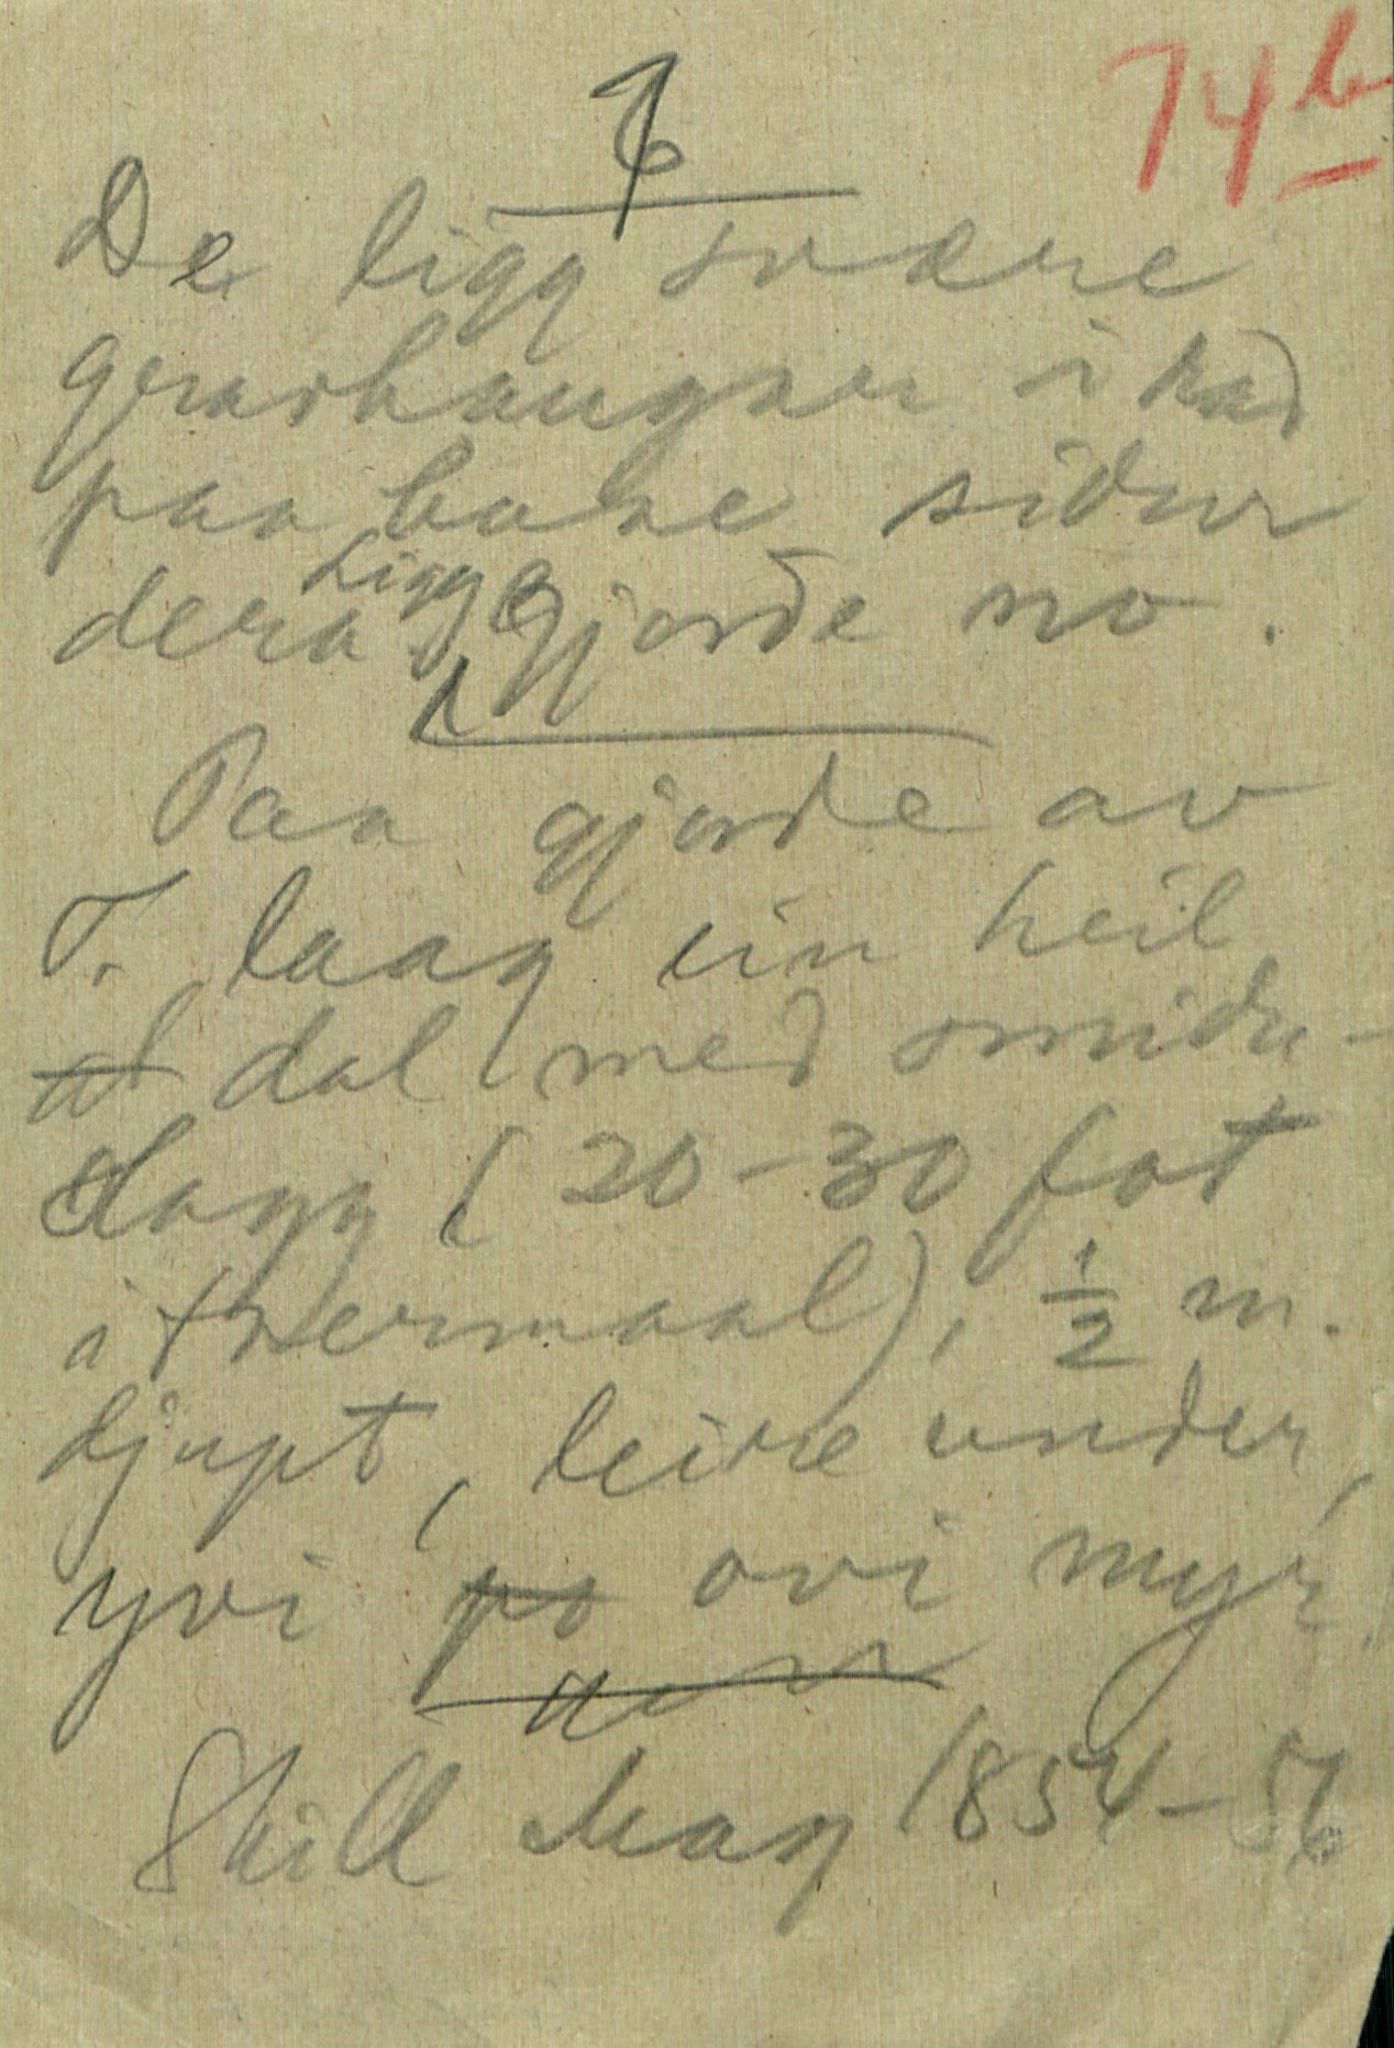 74b
6
De ligg svære
gravhaugar i rad
paa baae sidur
dera. Ligg e gjorde no.
Paa gjorde av
T. laag ein heil
dal med smidu-
slagg (20-30 fot
i tvermaal), 1/2 m.
djupt, leire under,
yvi ovi myr.
Skill Mag 1854-56